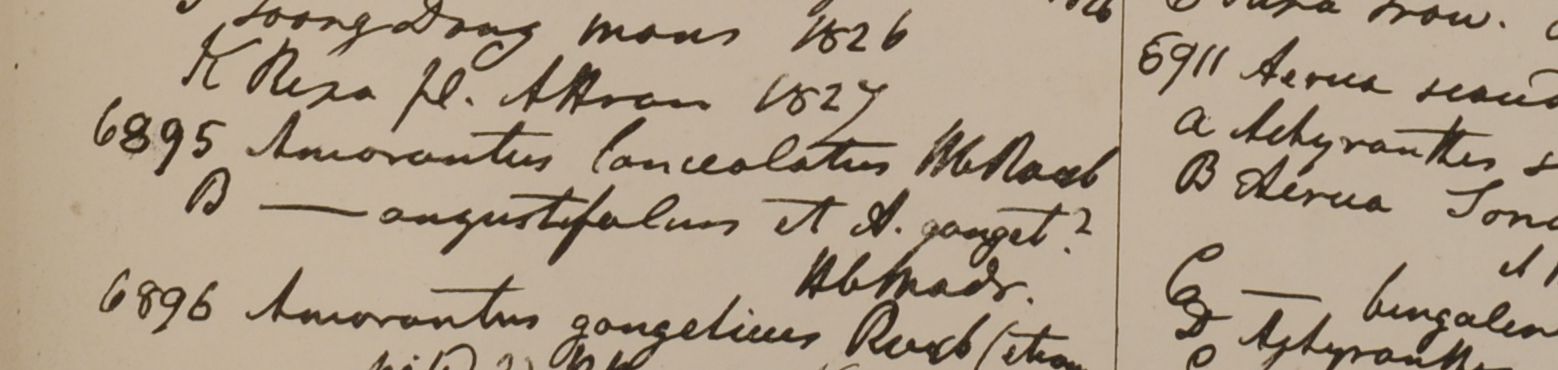 Toong Dong mons 1826
K Ripa fl. Attran 1827
6895 Amarantus lanceolatus Hb Roxb
B — angustifolius et A. ganget?
Hb Madr.
6896 Amarantus gangeticus Roxb (etiam
6911 Aerua scand
a Achyranthes s
B Aerua
C — bengalen
D Achyranthes